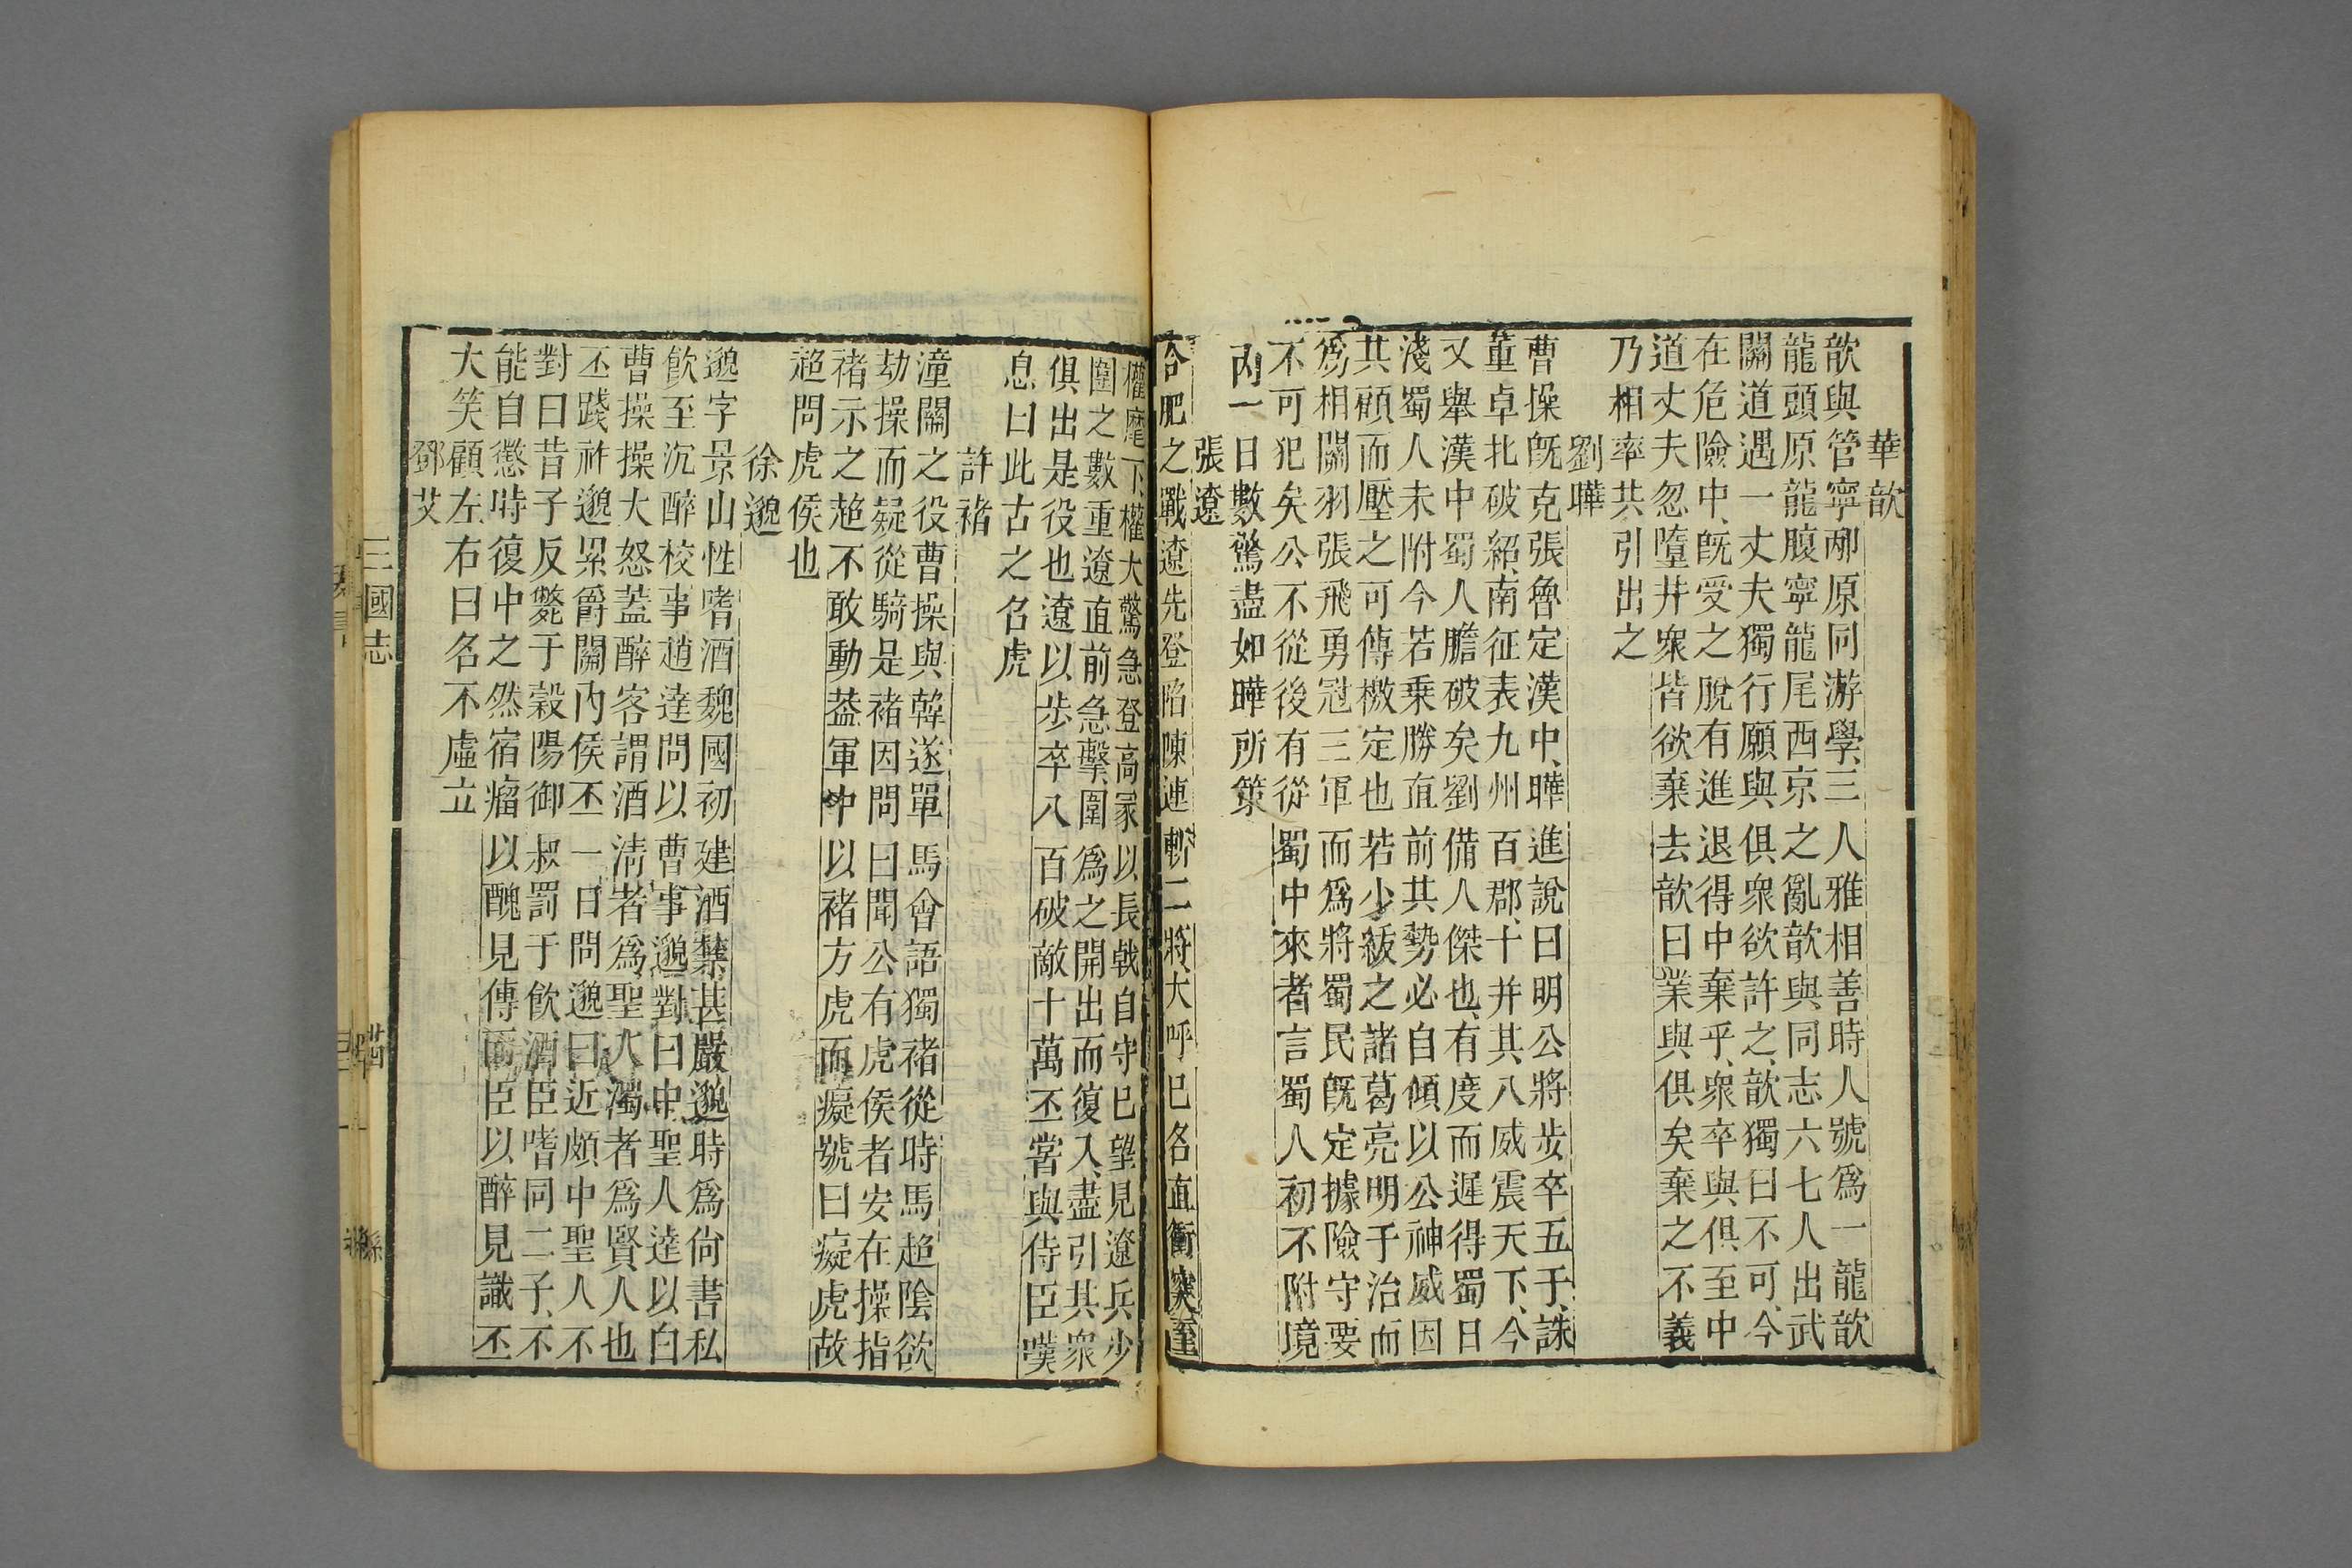 華歆
歆與管寧邴原同游學、三人雅相善時人號爲一龍歆
龍頭原龍腹寧龍尾西京之亂歆與同志六七人出武
關道遇一丈夫獨行願與俱衆欲許之、歆獨曰不可、今
在危險中、旣受之脫有進退得中棄乎、衆卒與俱至中
道丈夫忽墮井衆皆欲棄去歆曰業與俱矣棄之不義
乃相率共引出之
劉曄
曹操旣克張魯定漢中、曄進說曰明公將步卒五千、誅
董卓北破紹、南征表九州百郡、十并其、八威震天下、今
又舉漢中蜀人膽破矣劉備人傑也、有度而遲得蜀日
淺蜀人未附今若乗勝直前其勢必自傾以公神威因
其傾而壓之可傳檄定也若少緩之諸葛亮明于治而
爲相關羽張飛勇冠三軍而爲將蜀民旣定據險守要
不可犯矣公不從後有從蜀中來者言蜀人初不附境
內一日數驚盡如曄所策
張遼
合肥之戰遼先登陷陳連斬二將大呼已名直衝突至
權麾下權大驚急登高冢以長戟自守已望見遼兵少
圍之數重遼直前急擊圍爲之開出而復入、盡引其衆
俱出是役也遼以步卒八百破敵十萬丕嘗與侍臣嘆
息曰此古之名虎
許褚
潼關之役曹操與韓遂單馬會語獨褚從時馬超陰欲
劫操而疑從騎是褚因問曰聞公有虎侯者安在操指
褚示之超不敢動葢軍中以褚方虎而癡號曰癡虎故
超問虎侯也
徐邈
邈字景山性嗜酒魏國初建酒禁甚嚴邈時爲尙書私
飮至沉醉校事趙達問以曹事邈對曰中聖人達以白
曹操操大怒蓋醉客謂酒淸者爲聖人濁者爲賢人也
丕踐祚邈累爵關內侯丕一日問邈曰近頗中聖人不
對曰昔子反斃于穀陽御叔罰于飮酒臣嗜同二子、不
能自懲時復中之然宿瘤以醜見傳而臣以醉見識丕
大笑顧左右曰名不虛立
鄧艾
三國志